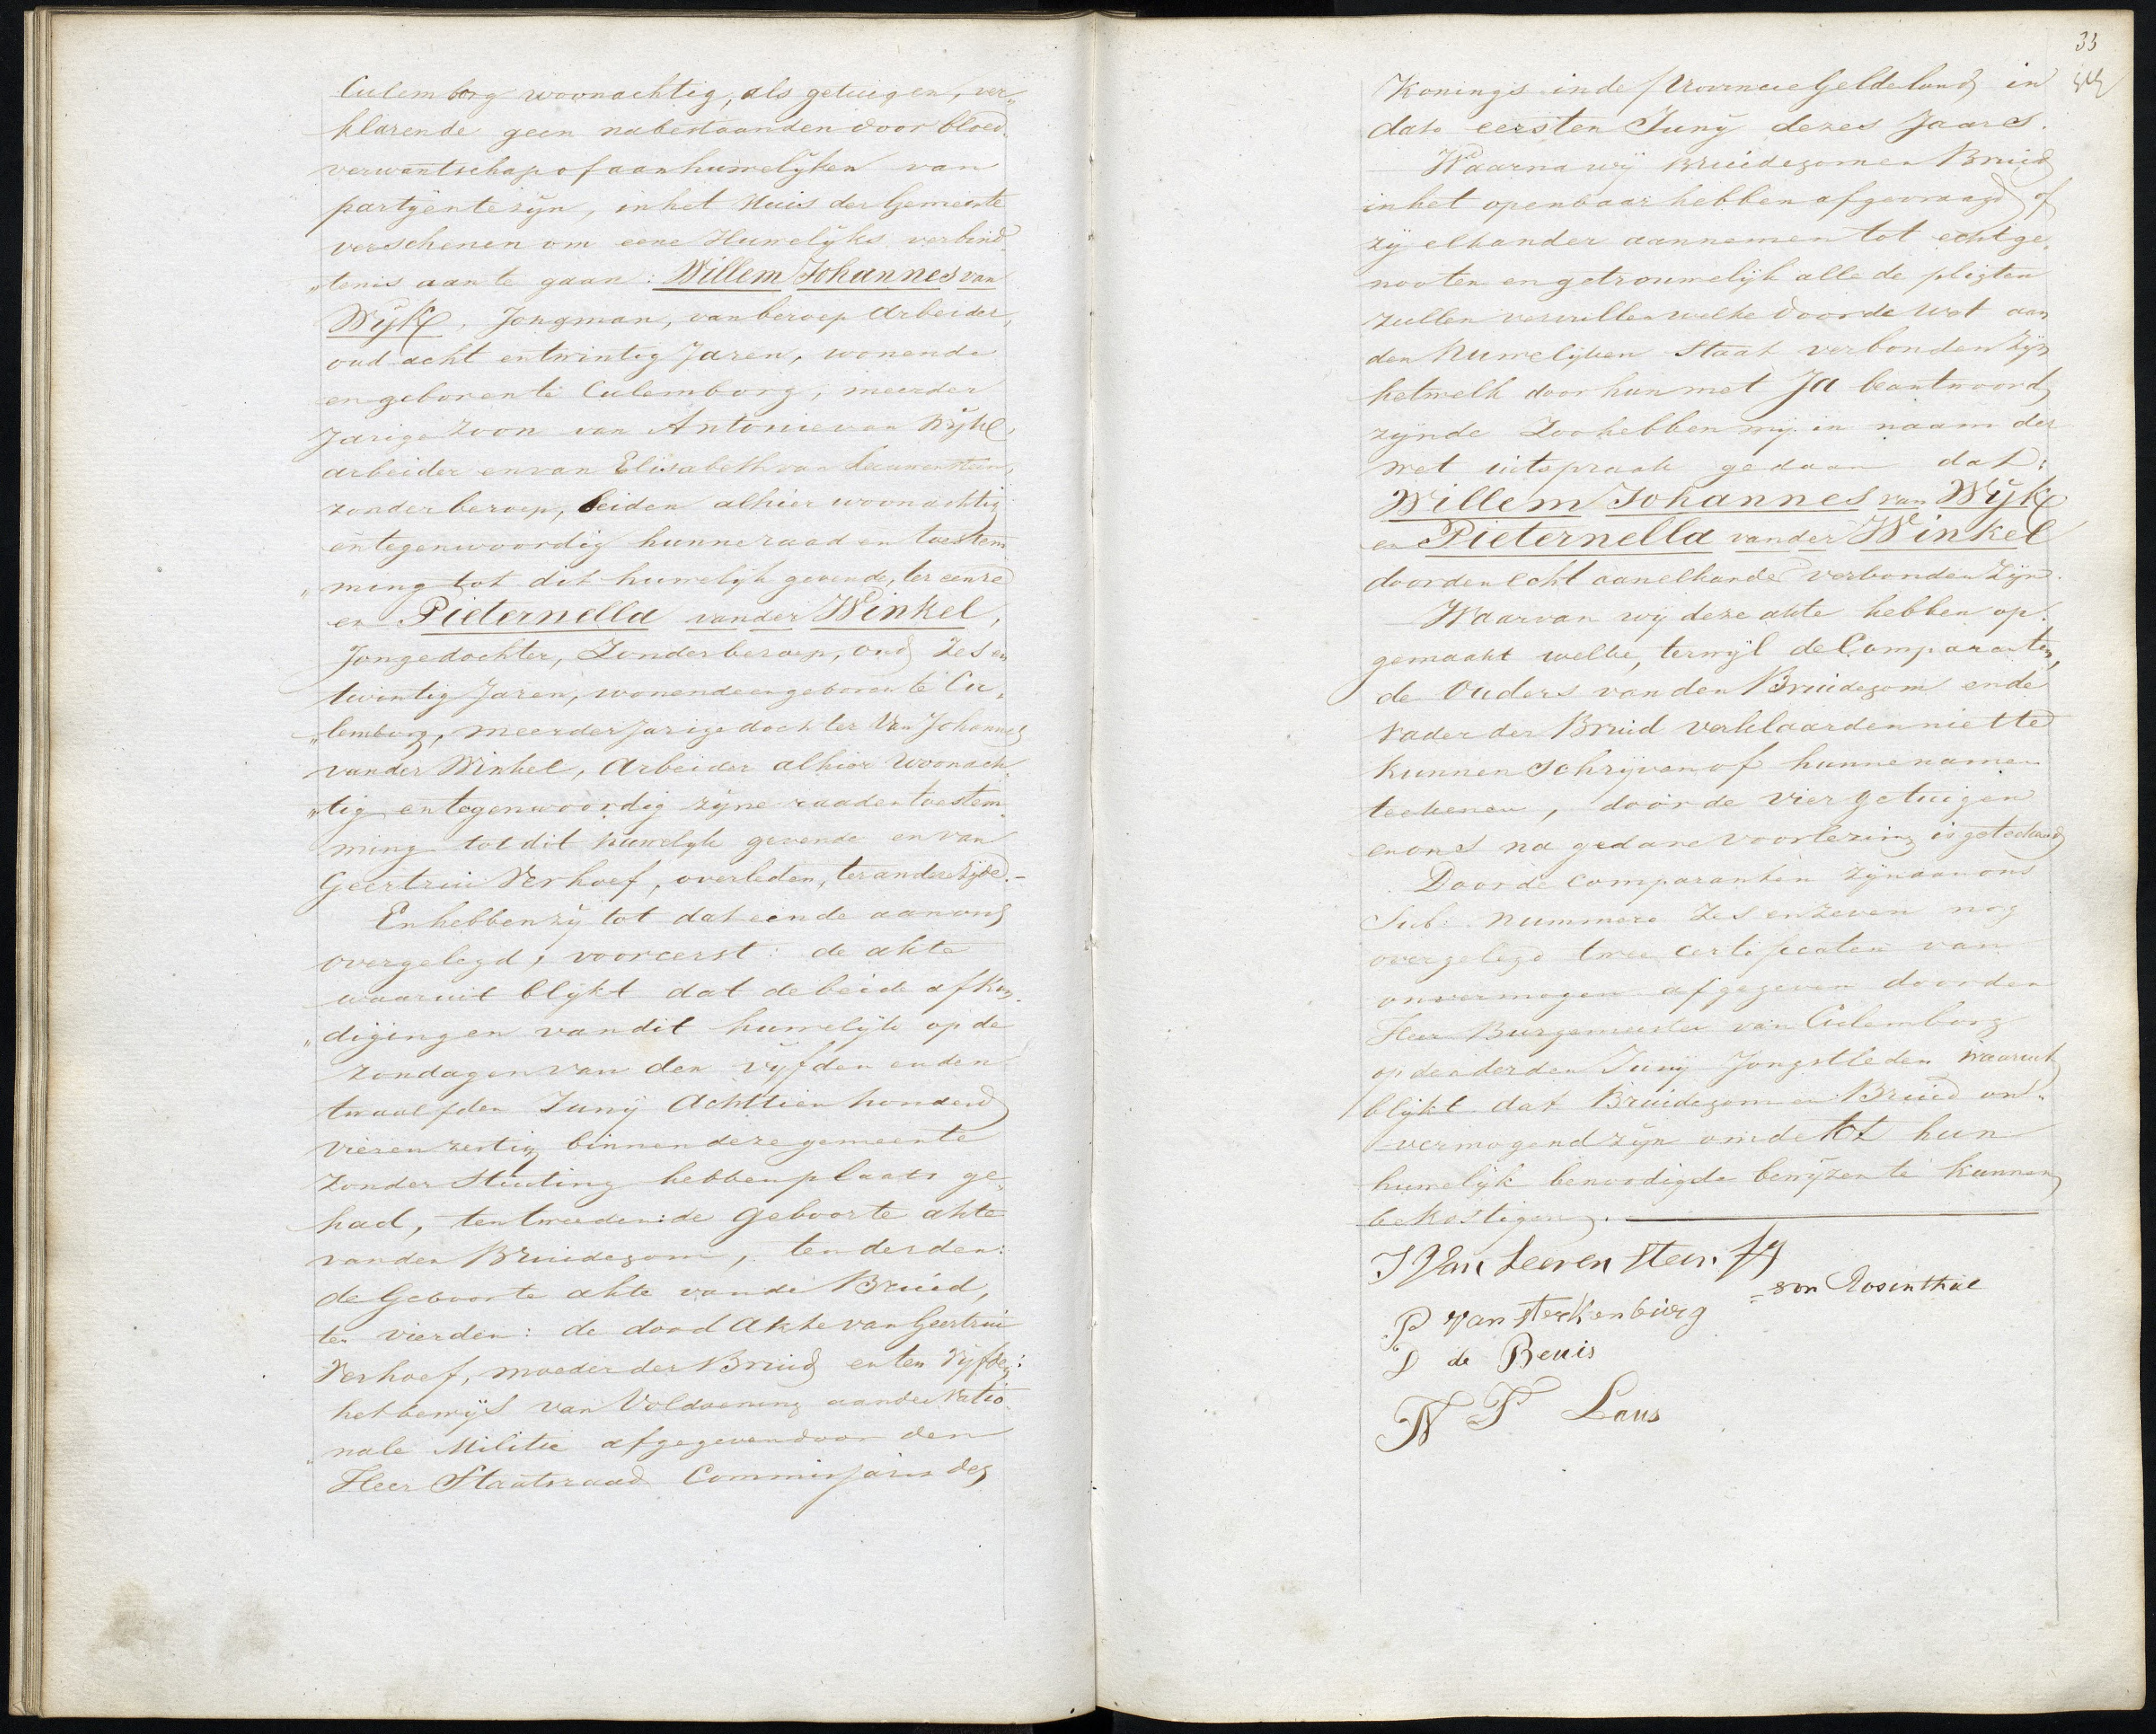 Culemborg woonachtig, als getuigen, ver„
klarende geen nabestaanden door bloed„
verwantschap of aanhuwelyken van
partyen te zyn, in het Huis der Gemeente
verschenen om eene Huwelyks verbind„
„tenis aan te gaan: Willem Johannes van
Wyk, Jongman, van beroep Arbeider,
oud acht en twintig Jaren, wonende
en geboren te Culemborg, meerder
Jarige Zoon van Antonie van Wyk,
arbeider en van Elisabeth van Leeuwenstein,
zonder beroep, beiden alhier woonachtig
en tegenwoordig hunne raad en toestem
„ming tot dit huwelyk gevende, ter eenre
en Pieternella van der Winkel,
Jongedochter, Zonder beroep, oud Zes en
twintig Jaren, wonende en geboren te Cu„
„lemborg, meerderjarige dochter Van Johannes
van der Winkel, Arbeider alhier Woonach
„tig en tegenwoordig zyne raad en toestem
ming tot dit huwelyk gevende en van
Geertrui Verhoef, overleden, ter andere Zyde.–
En hebben zy tot dat einde aan ons
overgelegd, vooreerst: de akte
waaruit blykt dat de beide afkon„
„digingen van dit huwelyk op de
zondagen van den vyfden en den
twaalfden Juny Achttien honderd
vier en zestig binnen deze gemeente
Zonder Stuiting hebben plaats ge„
had, ten tweeden: de Geboorte akte
van den Bruidegom, ten derden:
de Geboorte akte van de Bruid,
ten vierden: de dood Akte van Geertrui
Verhoef, moeder der Bruid en ten Vyfden:
het bewys van Voldoening aan de Natio„
„nale Militie afgegeven door den
Heer Staatsraad Commissaris des
33
Konings in de Provincie Gelderland, in
dato eersten Juny dezes Jaars.
Waarna wy Bruidegom en Bruid
in het openbaar hebben afgevraagd of
zy elkander aannemen tot echtge„
nooten en getrouwelyk alle de pligten
zullen vervullen welke door de Wet aan
den Huwelyken Staat verbonden Zyn
hetwelk door hun met Ja beantwoord
zynde Zoo hebben wy in naam der
wet uitspraak gedaan dat:
Willem Johannes van Wyk
en Pieternella van der Winkel
door den Echt aan elkander verbonden Zyn.
Waarvan wy deze akte hebben op„
gemaakt welke, terwyl de Comparanten,
de Ouders van den Bruidegom en de
Vader der Bruid verklaarden niet te
kunnen Schryven of hunne namen
teekenen, door de vier getuigen
en ons na gedane voorlezing is geteekend
Door de Comparanten Zyn aan ons
Sub: Nummero Zes en Zeven nog
overgelegd twee certificaten van
onvermogen afgegeven door den
Heer Burgemeester van Culemborg
op den derden Juny Jongstleden Waaruit
blykt dat Bruidegom en Bruid on„
vermogend zyn om de tot hun
huwelyk benoodigde bewyzen te kunnen
bekostigen.
J Van Leeven stein
von Rosenthal
P van sterkenburg
D de Beuis
W F Laus